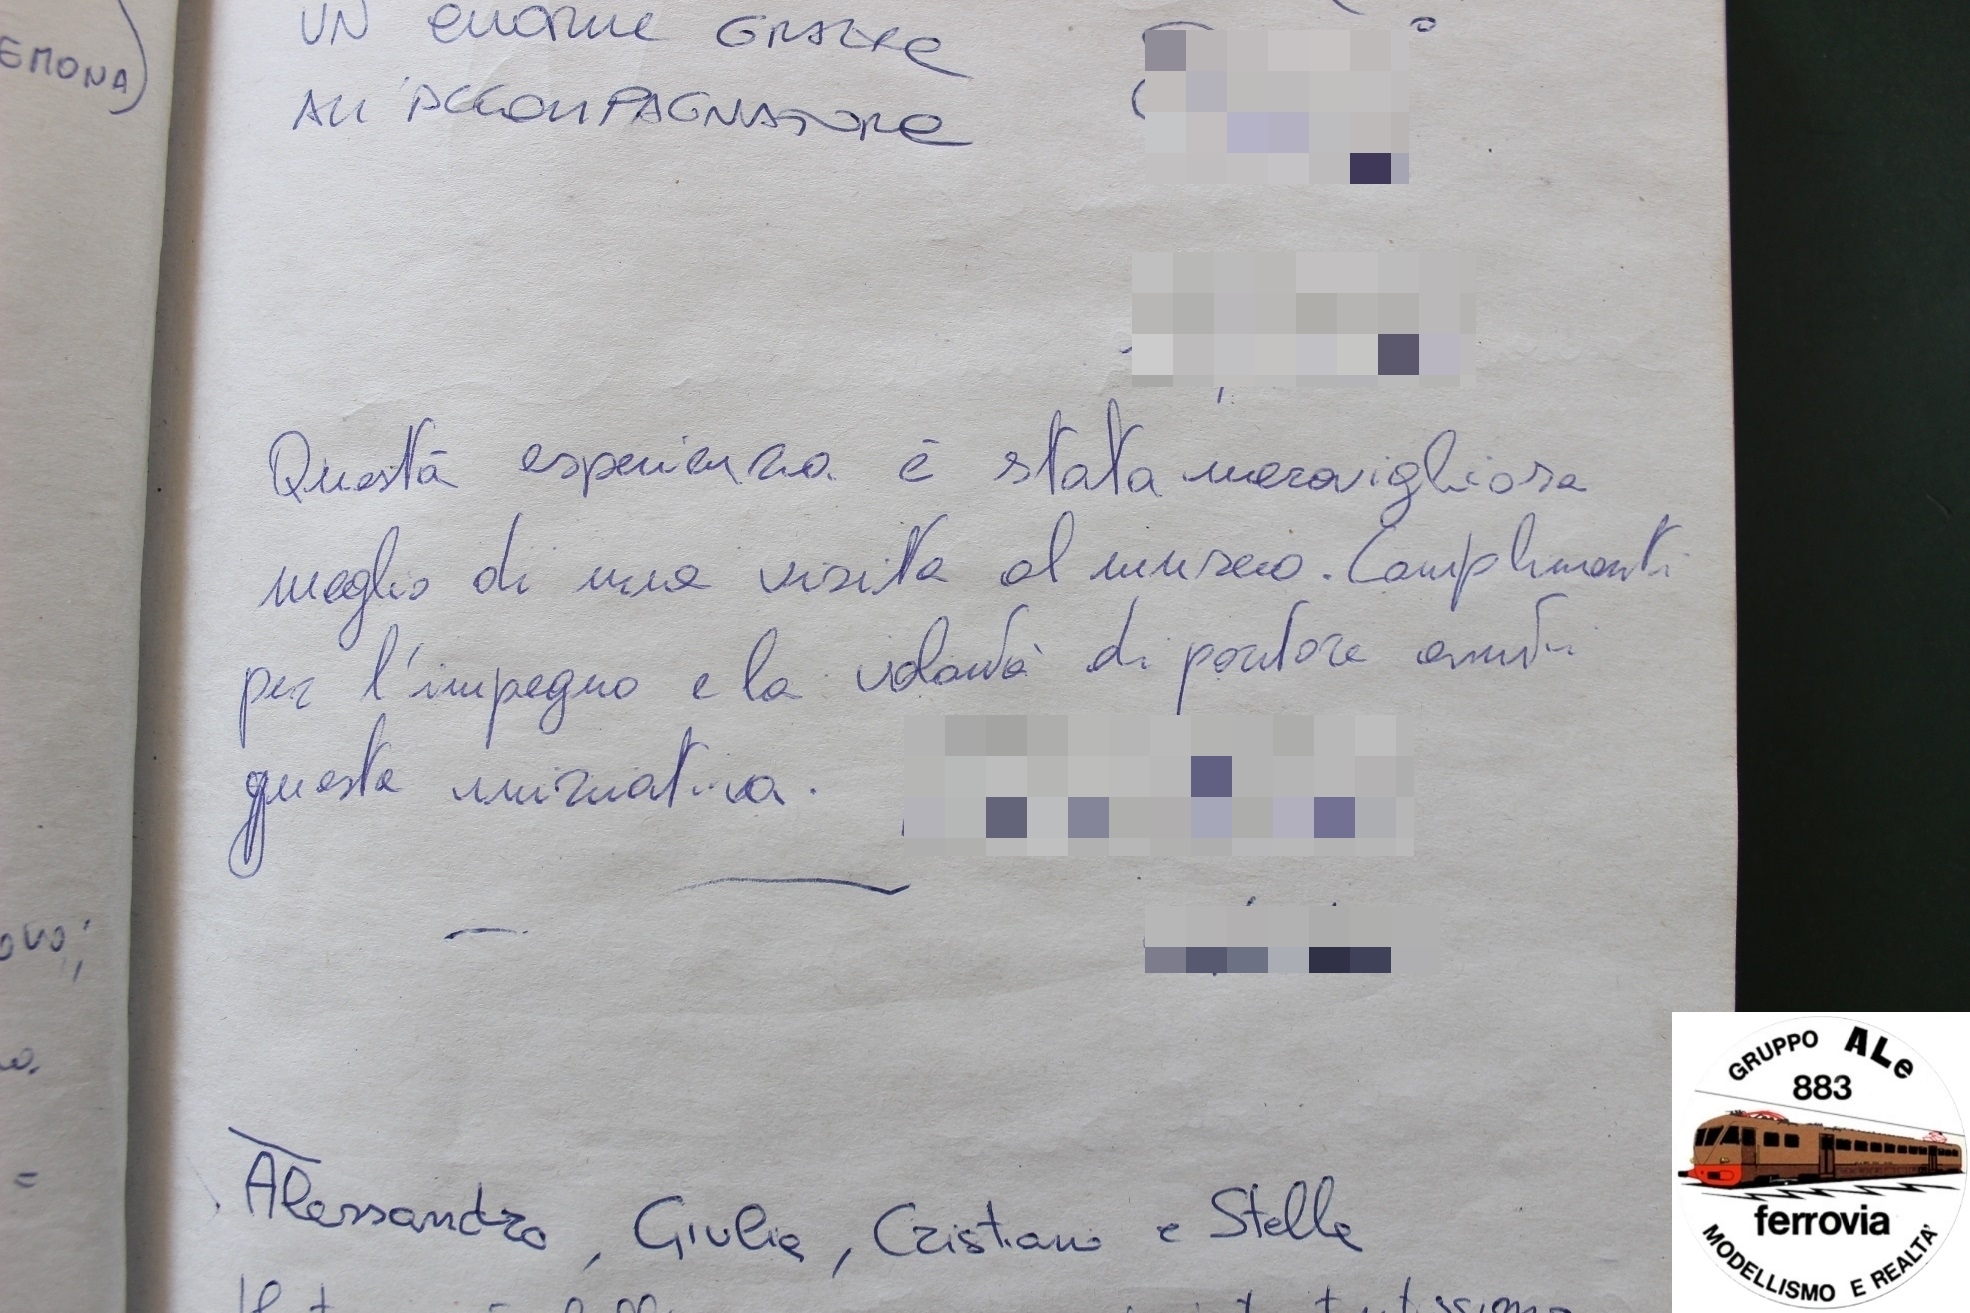 EMONA)
UN enorme GRAZIE
ALL'ACCOMPAGNATORE
Questa esperienza è stata meravigliosa
meglio di una visita al museo. Complimenti
per l'impegno e la volontà di portare avanti
questa iniziativa.
Alessandro, Giulia, Cristiano e Stella
GRUPPO ALe
883
ferrovia
MODELLISMO E REALTA'